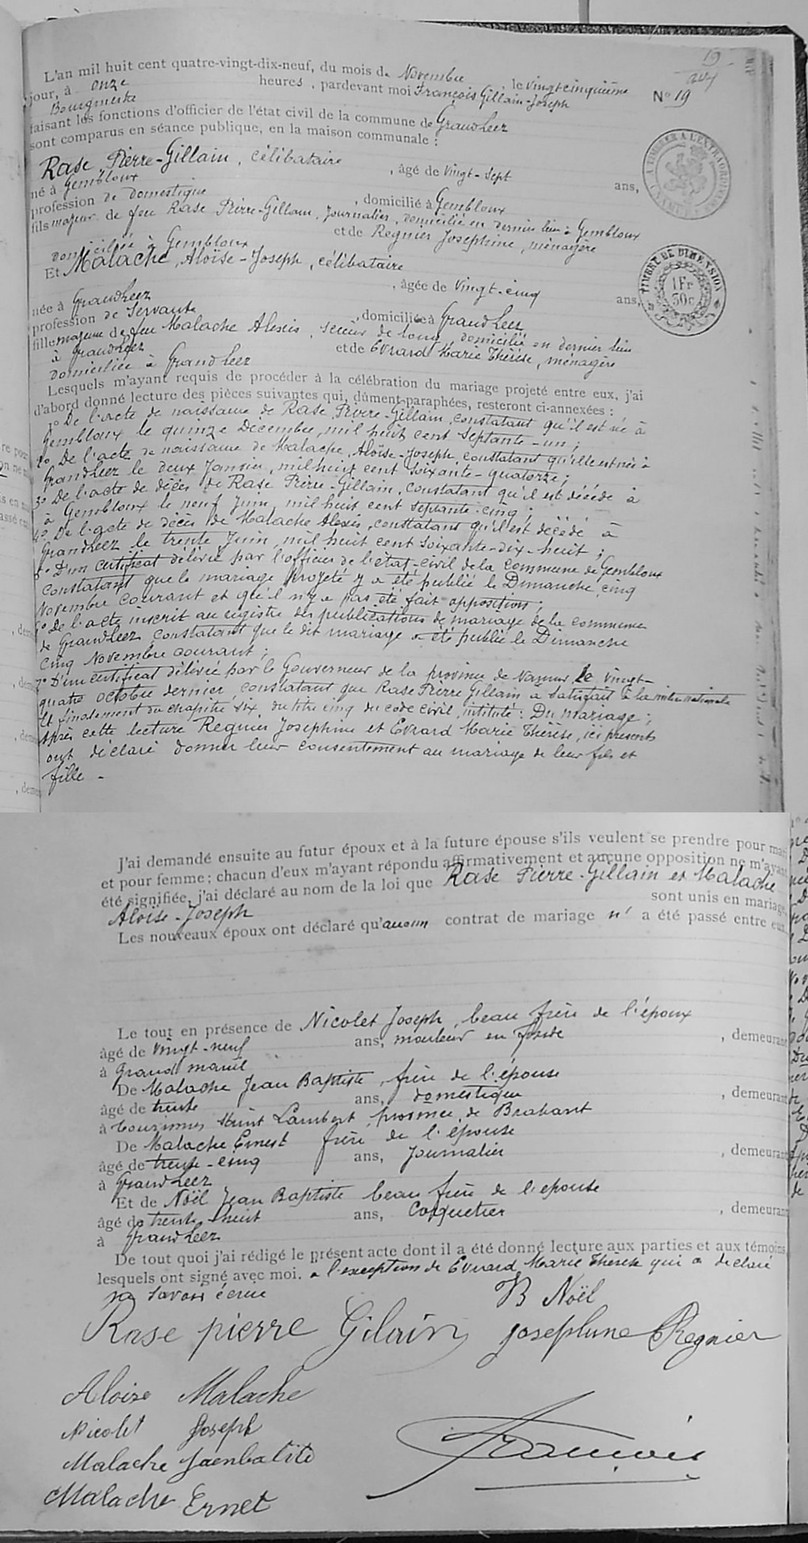 L'an mil huit cent quatre-vingt-dix-neuf, du mois de Novembre, le vingtcinquième
jour, à onze heures, pardevant moi François Gillain-Joseph
Bourgmestre N° 19
faisant les fonctions d'officier de l'état civil de la commune de Grandleez
sont comparus en séance publique, en la maison communale :
Rase, Pierre-Gillain, célibataire, âgé de vingt-sept ans,
né à Gembloux
profession de domestique, domicilié à Gembloux
fils majeur de feu Rase Pierre-Gillain, Journalier, domicilié en dernier lieu à Gembloux
et de Regnier Josephine, ménagère
domiciliée à Gembloux
Et Malache, Aloïse-Joseph, célibataire
, âgée de vingt-cinq ans,
née à Grandleez
profession de Servante, domiciliée à Grand Leez
fille majeure de feu Malache Alexis, scieur de long, domicilié en dernier lieu
à Grandleez et de Evrard Marie Thérèse, ménagère
domiciliée à Grand Leez
Lesquels m'ayant requis de procéder à la célébration du mariage projeté entre eux, j'ai
d'abord donné lecture des pièces suivantes qui, dûment paraphées, resteront ci-annexées :
1° De l'acte de naissance de Rase Pierre-Gillain, constatant qu'il est né à
Gembloux le quinze Décembre, mil huit cent septante-un ;
2° De l'acte de naissance de Malache, Aloïse-Joseph constatant qu'elle est née à
Grandleez le deux Janvier, mil huit cent soixante-quatorze ;
3° De l'acte de décès de Rase Pierre-Gillain, constatant qu'il est décédé à
à Gembloux le neuf Juin mil huit cent septante-cinq ;
4° De l'acte de décès de Malache Alexis, constatant qu'il est décédé à
Grandleez le trente Juin, mil huit cent soixante-dix-huit ;
5° D'un certificat délivré par l'officier de l'état-civil de la Commune de Gembloux
constatant que le mariage projeté y a été publié le Dimanche, cinq
Novembre courant et qu'il n'y a pas été fait opposition ;
6° De l'acte inscrit au registre des publications de mariage de la commune
de Grandleez constatant que le dit mariage a été publié le Dimanche
cinq Novembre courant ;
7° D'un certificat délivré par le Gouverneur de la province de Namur le vingt-
quatre octobre dernier, constatant que Rase Pierre Gillain a satisfait à la milice nationale
Et finalement du chapitre six du titre cinq du code civil, intitulé : Du mariage ;
Après cette lecture Regnier Josephine et Evrard Marie Thérèse, ici présents
ont déclaré donner leur consentement au mariage de leur fils et
fille -
TIMBRE DE DIMENSION
1 Fr
30c
J'ai demandé ensuite au futur époux et à la future épouse s'ils veulent se prendre pour mari
et pour femme ; chacun d'eux m'ayant répondu affirmativement et aucune opposition ne m'ayant
été signifiée, j'ai déclaré au nom de la loi que Rase Pierre-Gillain et Malache
Aloïse-Joseph sont unis en mariage
Les nouveaux époux ont déclaré qu'aucun contrat de mariage n' a été passé entre eux
Le tout en présence de Nicolet Joseph, beau frère de l'époux
âgé de vingt-neuf ans, mouleur en fonte, demeurant
à Grand manil
De Malache Jean Baptiste, frère de l'épouse
âgé de trente ans, domestique, demeurant
à Saint Lambert, province de Brabant
De Malache Ernest frère de l'épouse
âgé de trente-cinq ans, Journalier, demeurant
à Grandleez
Et de Noël Jean Baptiste beau frère de l'épouse
âgé de trente huit ans, Coquetier, demeurant
à Grandleez
De tout quoi j'ai rédigé le présent acte dont il a été donné lecture aux parties et aux témoins,
lesquels ont signé avec moi. à l'exception de Evrard Marie Thérèse qui a déclaré
ne savoir écrire
JB Noël
Rase pierre Gilain Josephine Regnier
Aloïse Malache
Nicolet Joseph
Malache Jaenbatite
François
Malache Ernet